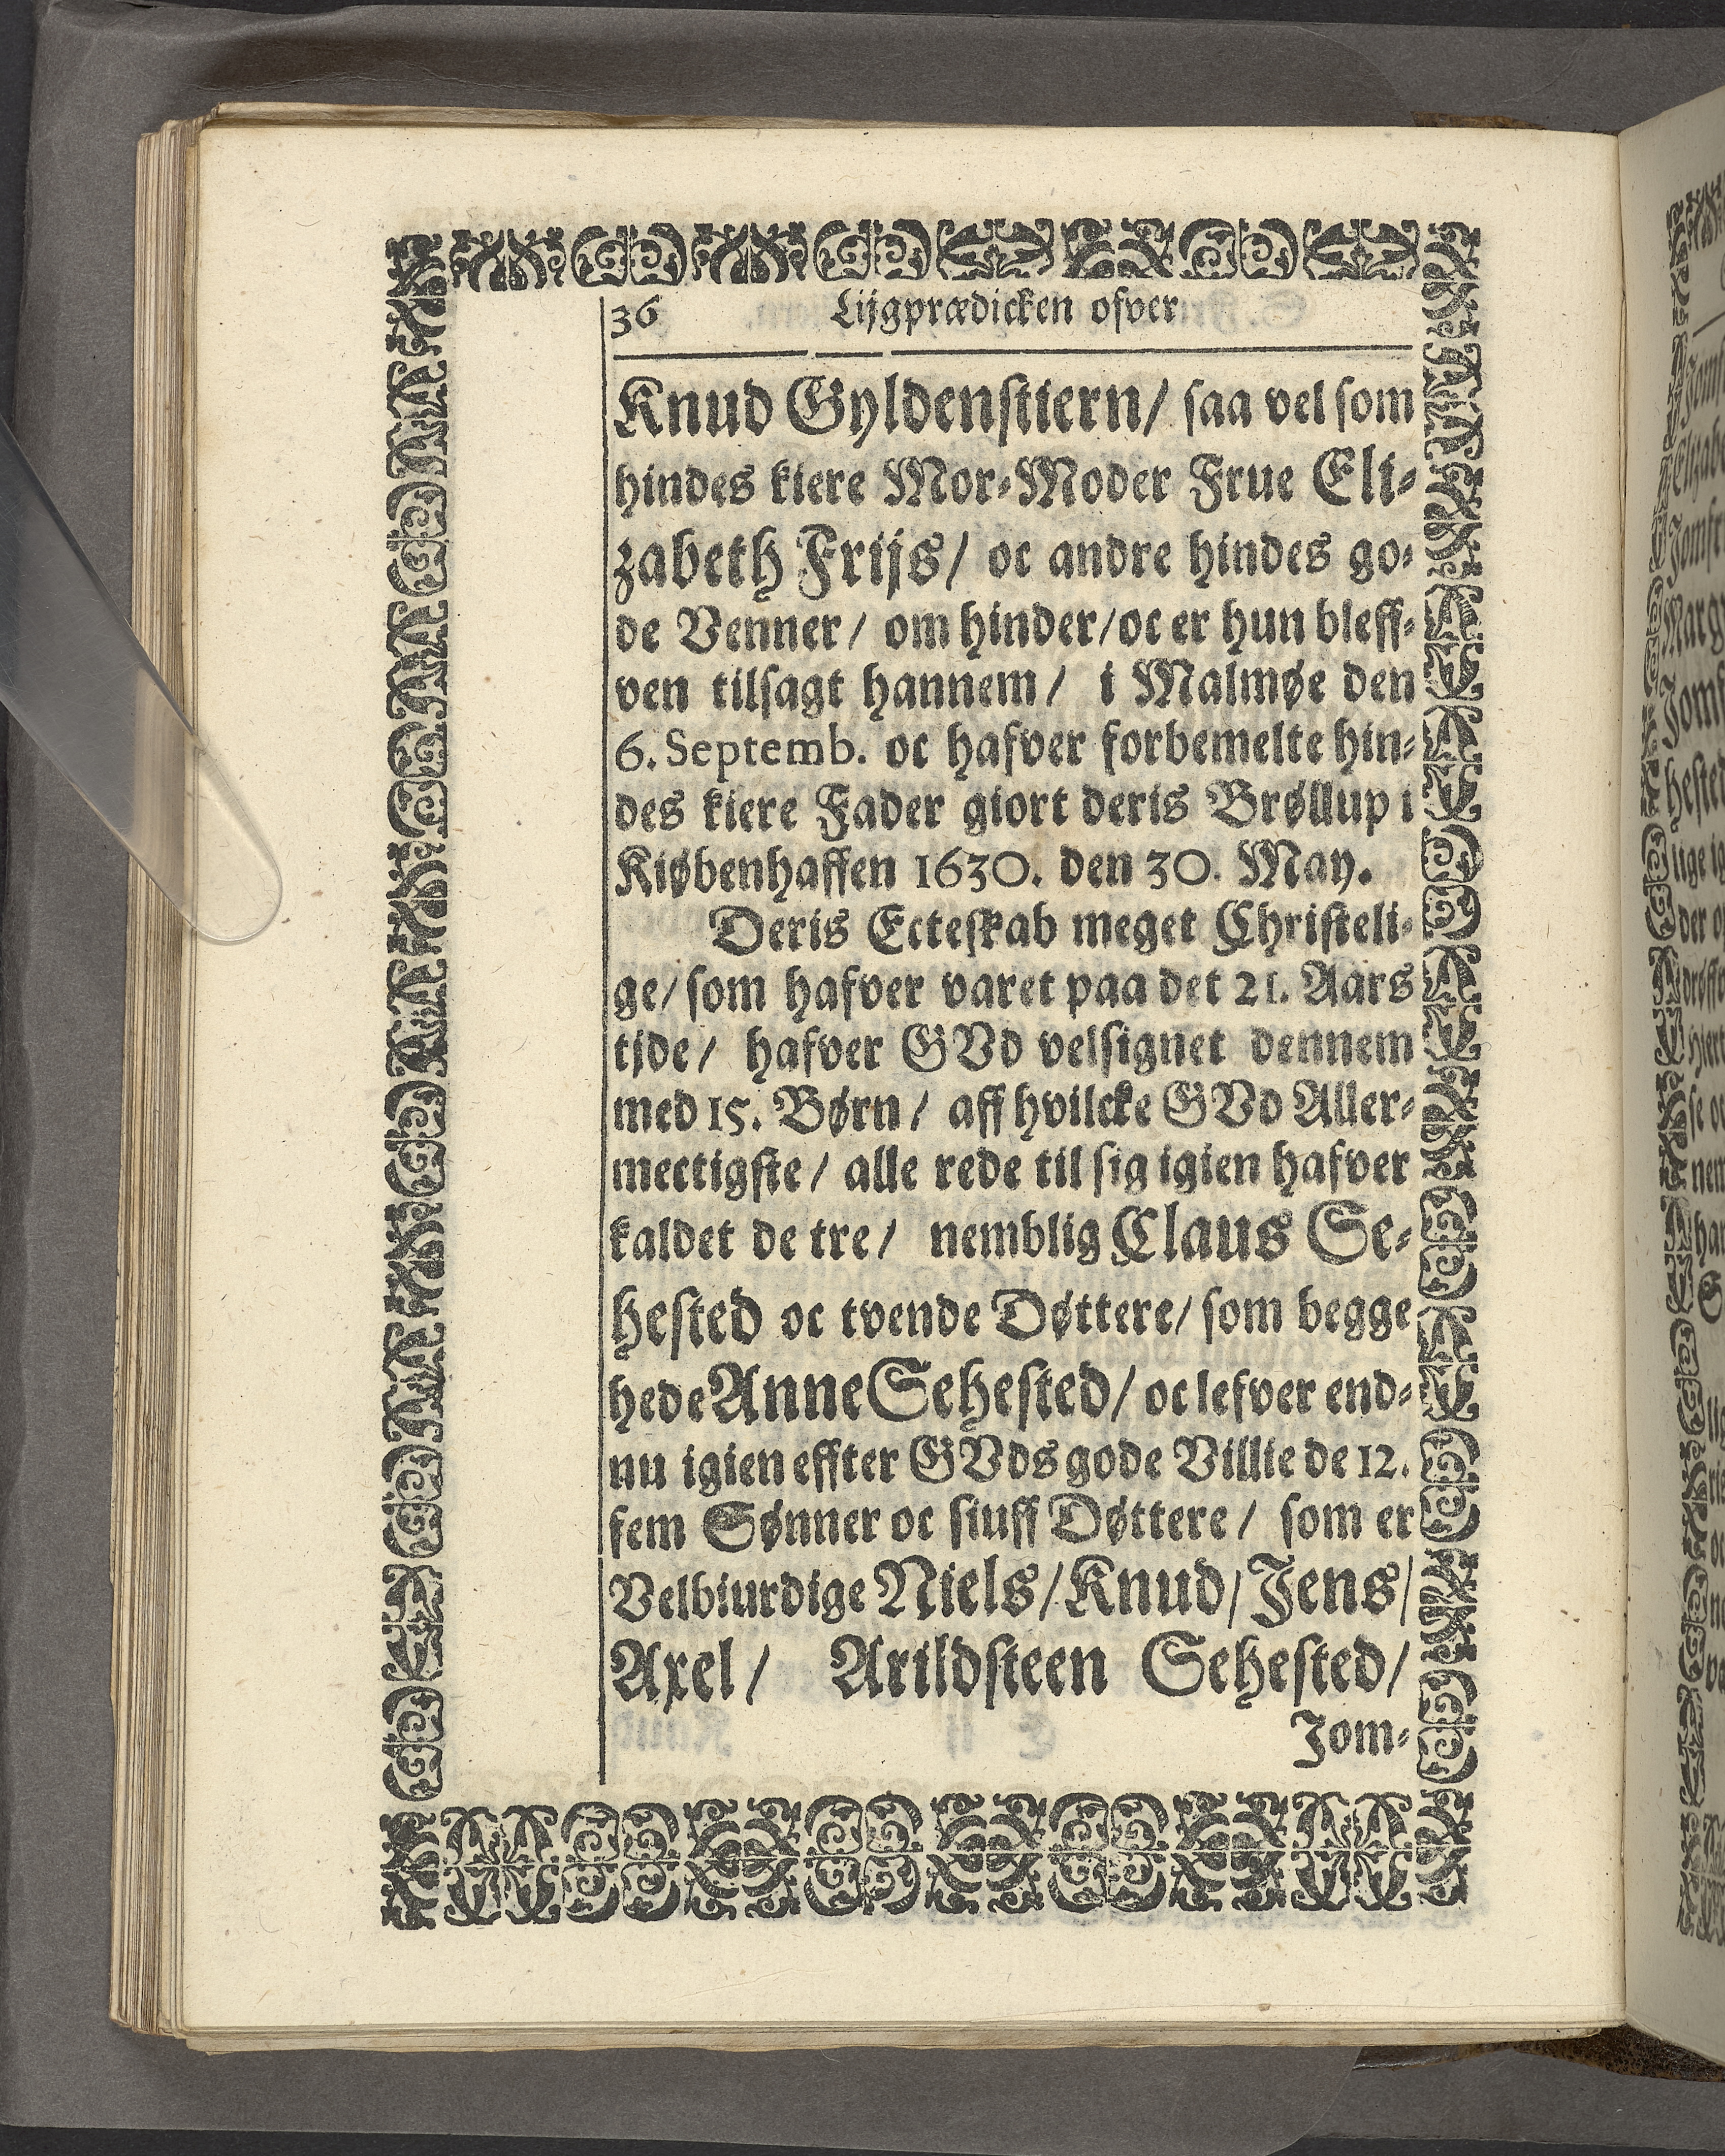 36 Lijgprædicken ofver
Knud Gyldenstiern/ saa vel som
hindes kiere Mor-Moder Frue Eli-
zabeth Frijs/ oc andre hindes go-
de Venner/ om hinder/oc er hun bleff-
ven tilsagt hannem/ i Malmøe den
6. Septemb. oc hafver forbemelte hin-
des kiere Fader giort deris Brøllup i
Kiøbenhaffen 1630. den 30. May.
Deris Ecteskab meget Christeli-
ge/ som hafver varet paa det 21. Aars
tjde/ hafver GVd velsignet dennem
med 15. Børn/ aff hvilcke GVd Aller-
mectigste/ alle rede til sig igien hafver
kaldet de tre/ nemblig Claus Se-
hested oc tvende Døttere/ som begge
hede Anne Sehested/ oc lefver end-
nu igien effter GVds gode Villie de 12.
fem Sønner oc siuff Døttere/ som er
Velbiurdige Niels/ Knud/ Jens/
Axel/ Arildsteen Sehested/
Jom-